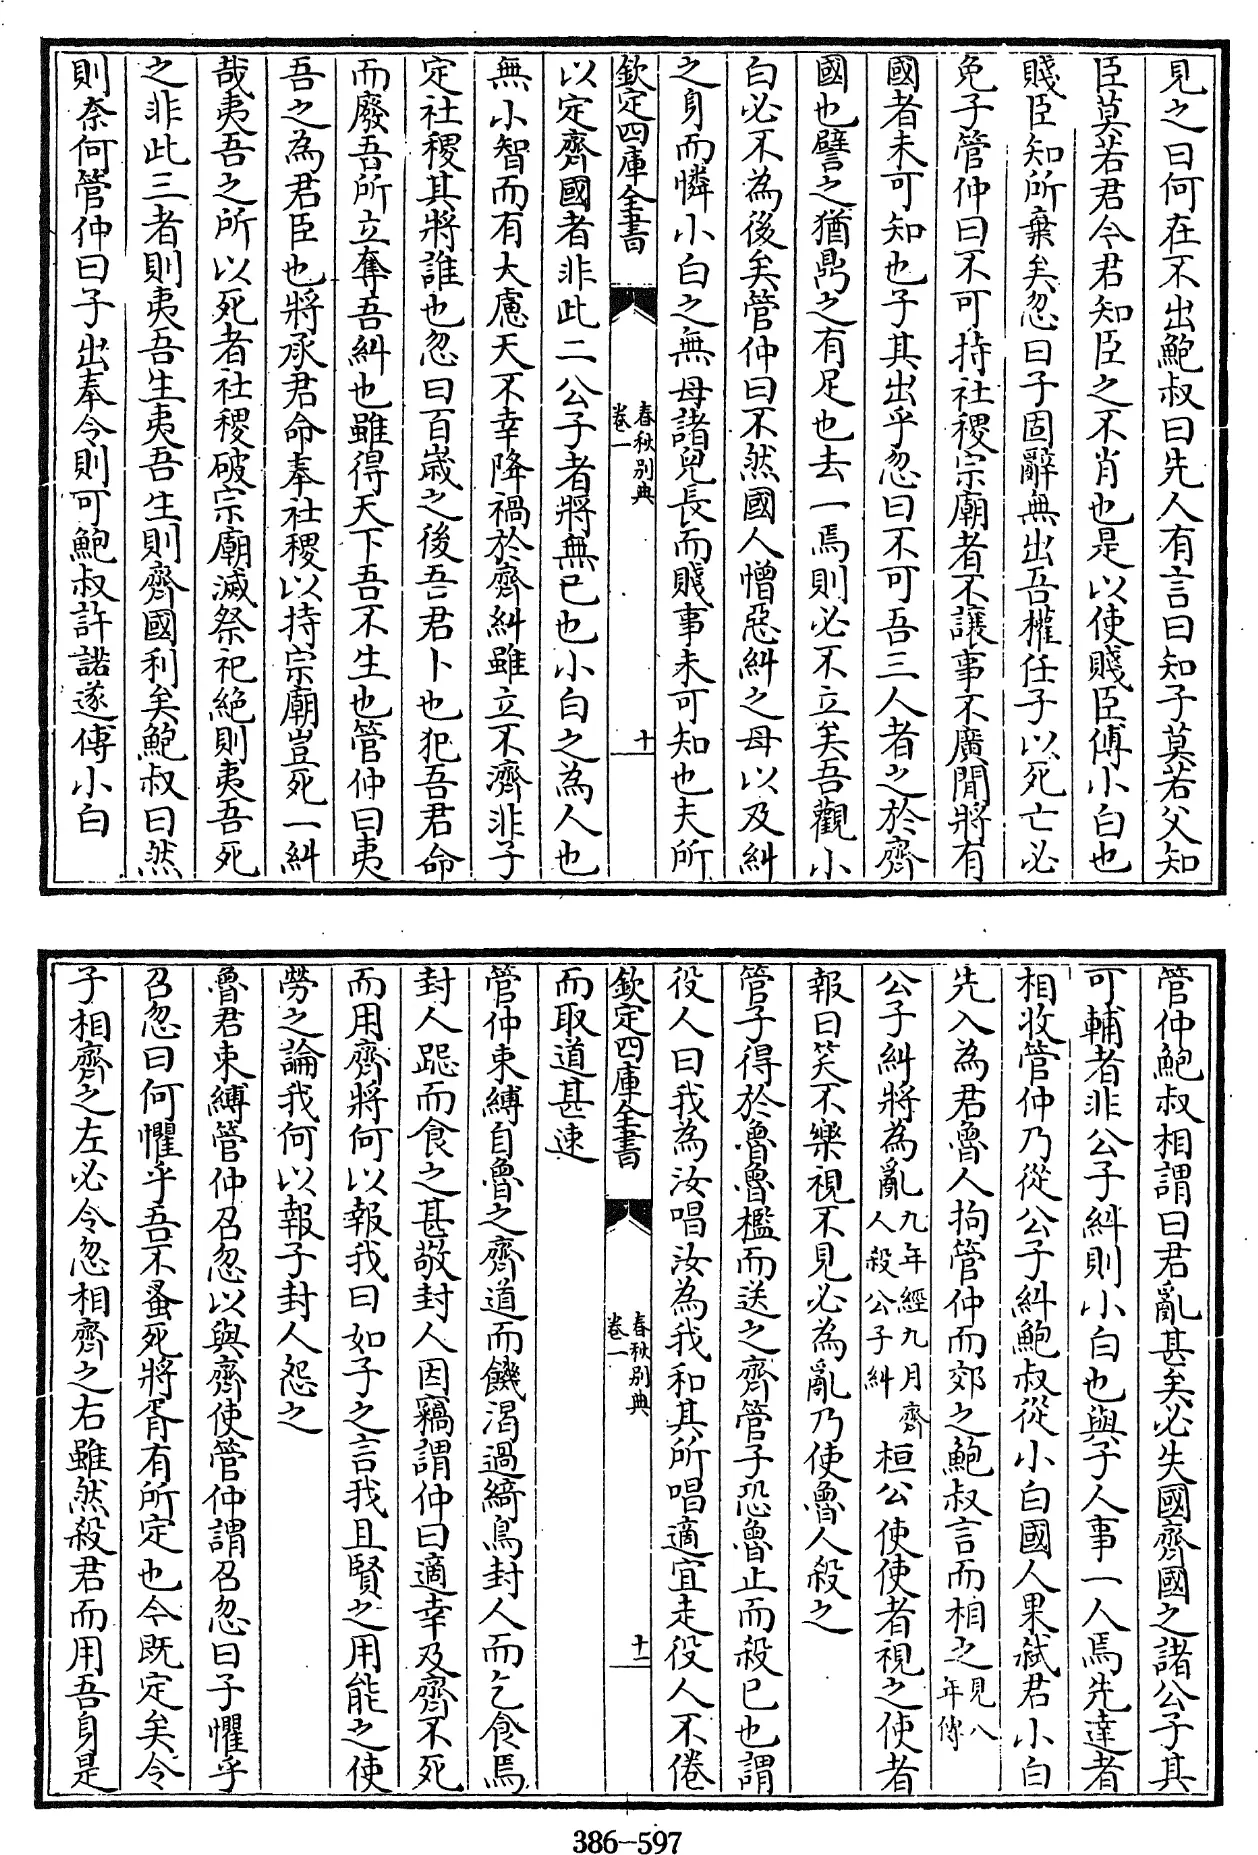 見之曰何在不出鮑叔曰先人有言曰知子莫若父知
臣莫若君今君知臣之不肖也是以使賤臣傅小白也
賤臣知所棄矣忽曰子固辭無出吾權任子以死亡必
免子管仲曰不可持社稷宗廟者不讓事不廣閒將有
國者未可知也子其出乎忽曰不可吾三人者之於齊
國也譬之猶鼎之有足也去一焉則必不立矣吾觀小
白必不為後矣管仲曰不然國人憎惡糾之母以及糾
之身而憐小白之無母諸兒長而賤事未可知也夫所
欽定四庫全書
春秋別典
卷一
十
以定齊國者非此二公子者將無已也小白之為人也
無小智而有大慮天不幸降禍於齊糾雖立不濟非子
定社稷其將誰也忽曰百歲之後吾君卜也犯吾君命
而廢吾所立奪吾糾也雖得天下吾不生也管仲曰夷
吾之為君臣也將承君命奉社稷以持宗廟豈死一糾
哉夷吾之所以死者社稷破宗廟滅祭祀絕則夷吾死
之非此三者則夷吾生夷吾生則齊國利矣鮑叔曰然
則奈何管仲曰子出奉令則可鮑叔許諾遂傅小白
管仲鮑叔相謂曰君亂甚矣必失國齊國之諸公子其
可輔者非公子糾則小白也與子人事一人焉先達者
相收管仲乃從公子糾鮑叔從小白國人果弒君小白
先入為君魯人拘管仲而郊之鮑叔言而相之見八
年傳
公子糾將為亂九年經九月齊
人殺公子糾桓公使使者視之使者
報曰笑不樂視不見必為亂乃使魯人殺之
管子得於魯魯檻而送之齊管子恐魯止而殺已也謂
役人曰我為汝唱汝為我和其所唱適宜走役人不倦
欽定四庫全書
春秋別典
卷一
十一
而取道甚速
管仲束縛自魯之齊道而饑渴過綺烏封人而乞食焉
封人跪而食之甚敬封人因竊謂仲曰適幸及齊不死
而用齊將何以報我曰如子之言我且賢之用能之使
勞之論我何以報子封人怨之
魯君束縛管仲召忽以與齊使管仲謂召忽曰子懼乎
召忽曰何懼乎吾不蚤死將胥有所定也今既定矣令
子相齊之左必令忽相齊之右雖然殺君而用吾身是
386-597